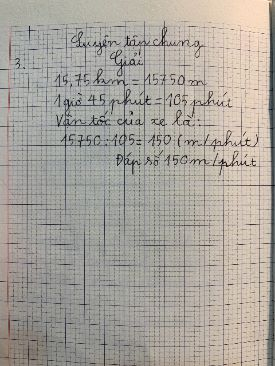 Luyện tập chung
3. Giải
15,75 km = 15750 m
1 giờ 45 phút = 105 phút
Vận tốc của xe là:
15750 : 105 = 150 (m/phút)
Đáp số 150 m/phút